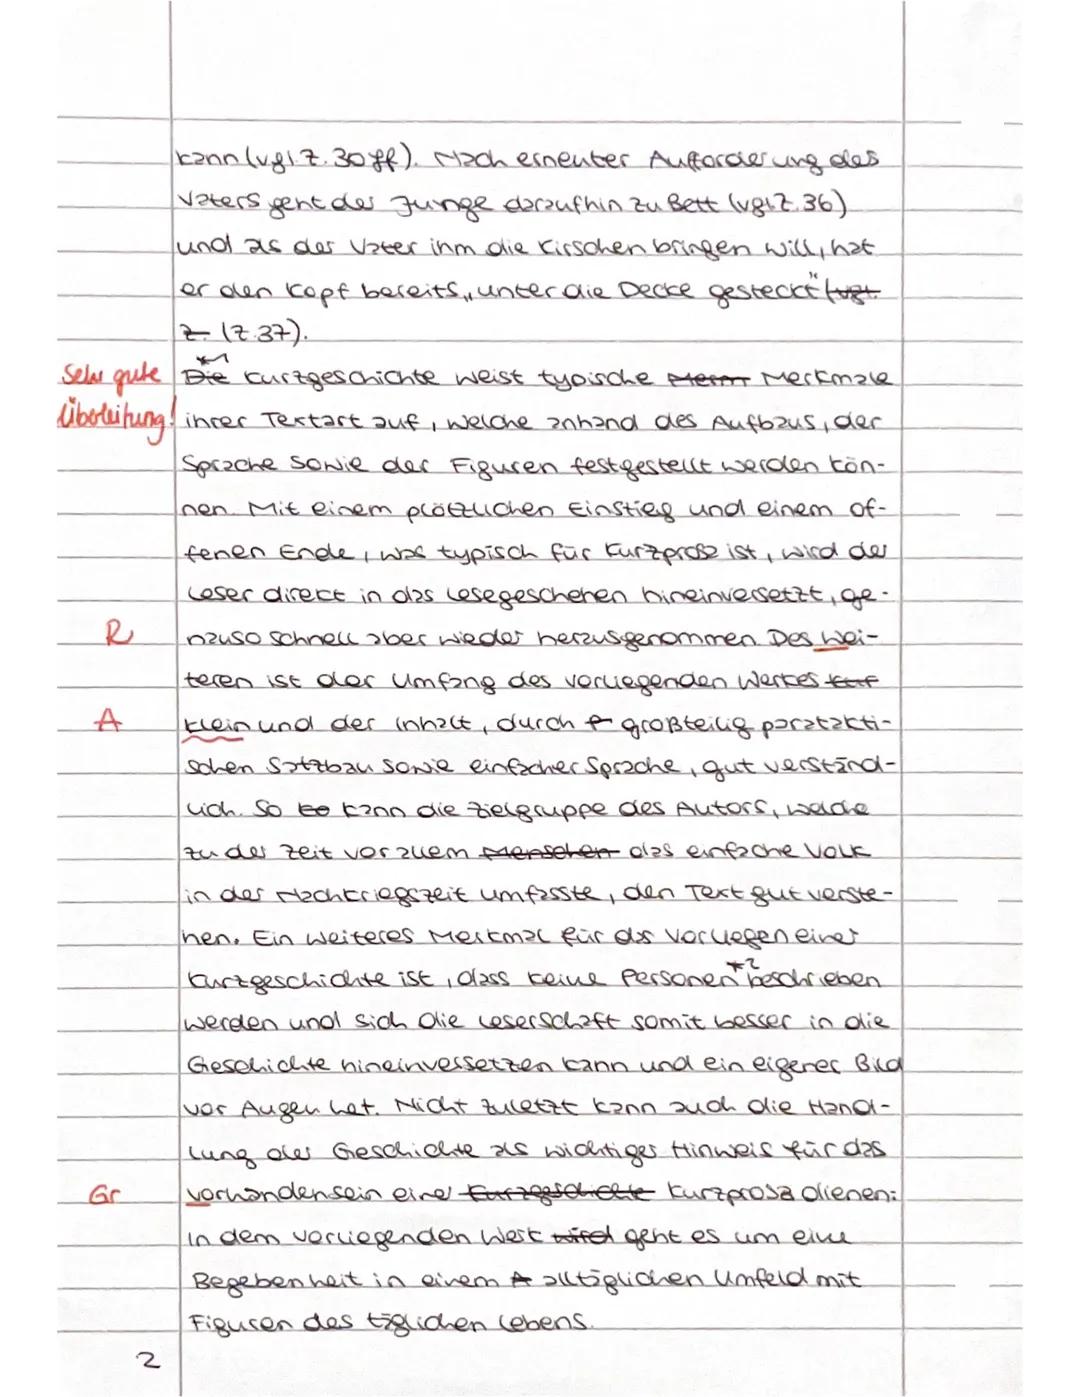 kann (vgl. Z. 30 ff). Nach erneuter Aufforderung des
Vaters geht der Junge daraufhin zu Bett (vgl. Z. 36)
und als der Vater ihm die Kirschen bringen will, hat
er den Kopf bereits „unter die Decke gesteckt" (vgl.
Z. (Z. 37).
*1
Sehr gute Die Kurzgeschichte weist typische Merm Merkmale
Überleitung! ihrer Textart auf, welche anhand des Aufbaus, der
Sprache sowie der Figuren festgestellt werden kön-
nen. Mit einem plötzlichen Einstieg und einem of-
fenen Ende, was typisch für Kurzprosa ist, wird der
Leser direkt in das Lesegeschehen hineinversetzt, ge-
R nauso schnell aber wieder herausgenommen. Des Wei-
teren ist der Umfang des vorliegenden Werkes
A klein und der Inhalt, durch großteilig paratakti-
schen Satzbau sowie einfacher Sprache, gut verständ-
lich. So kann die Zielgruppe des Autors, welche
zu der Zeit vor allem Menschen das einfache Volk
in der Nachkriegszeit umfasste, den Text gut verste-
hen. Ein weiteres Merkmal für das Vorliegen einer
Kurzgeschichte ist, dass keine Personen *2 beschrieben
werden und sich die Leserschaft somit besser in die
Geschichte hineinversetzen kann und ein eigenes Bild
vor Augen hat. Nicht zuletzt kann auch die Hand-
lung der Geschichte als wichtiger Hinweis für das
Gr vorhandensein einer Kurzgeschichte Kurzprosa dienen:
In dem vorliegenden Werk wird geht es um eine
Begebenheit in einem A alltäglichen Umfeld mit
Figuren des täglichen Lebens.
2